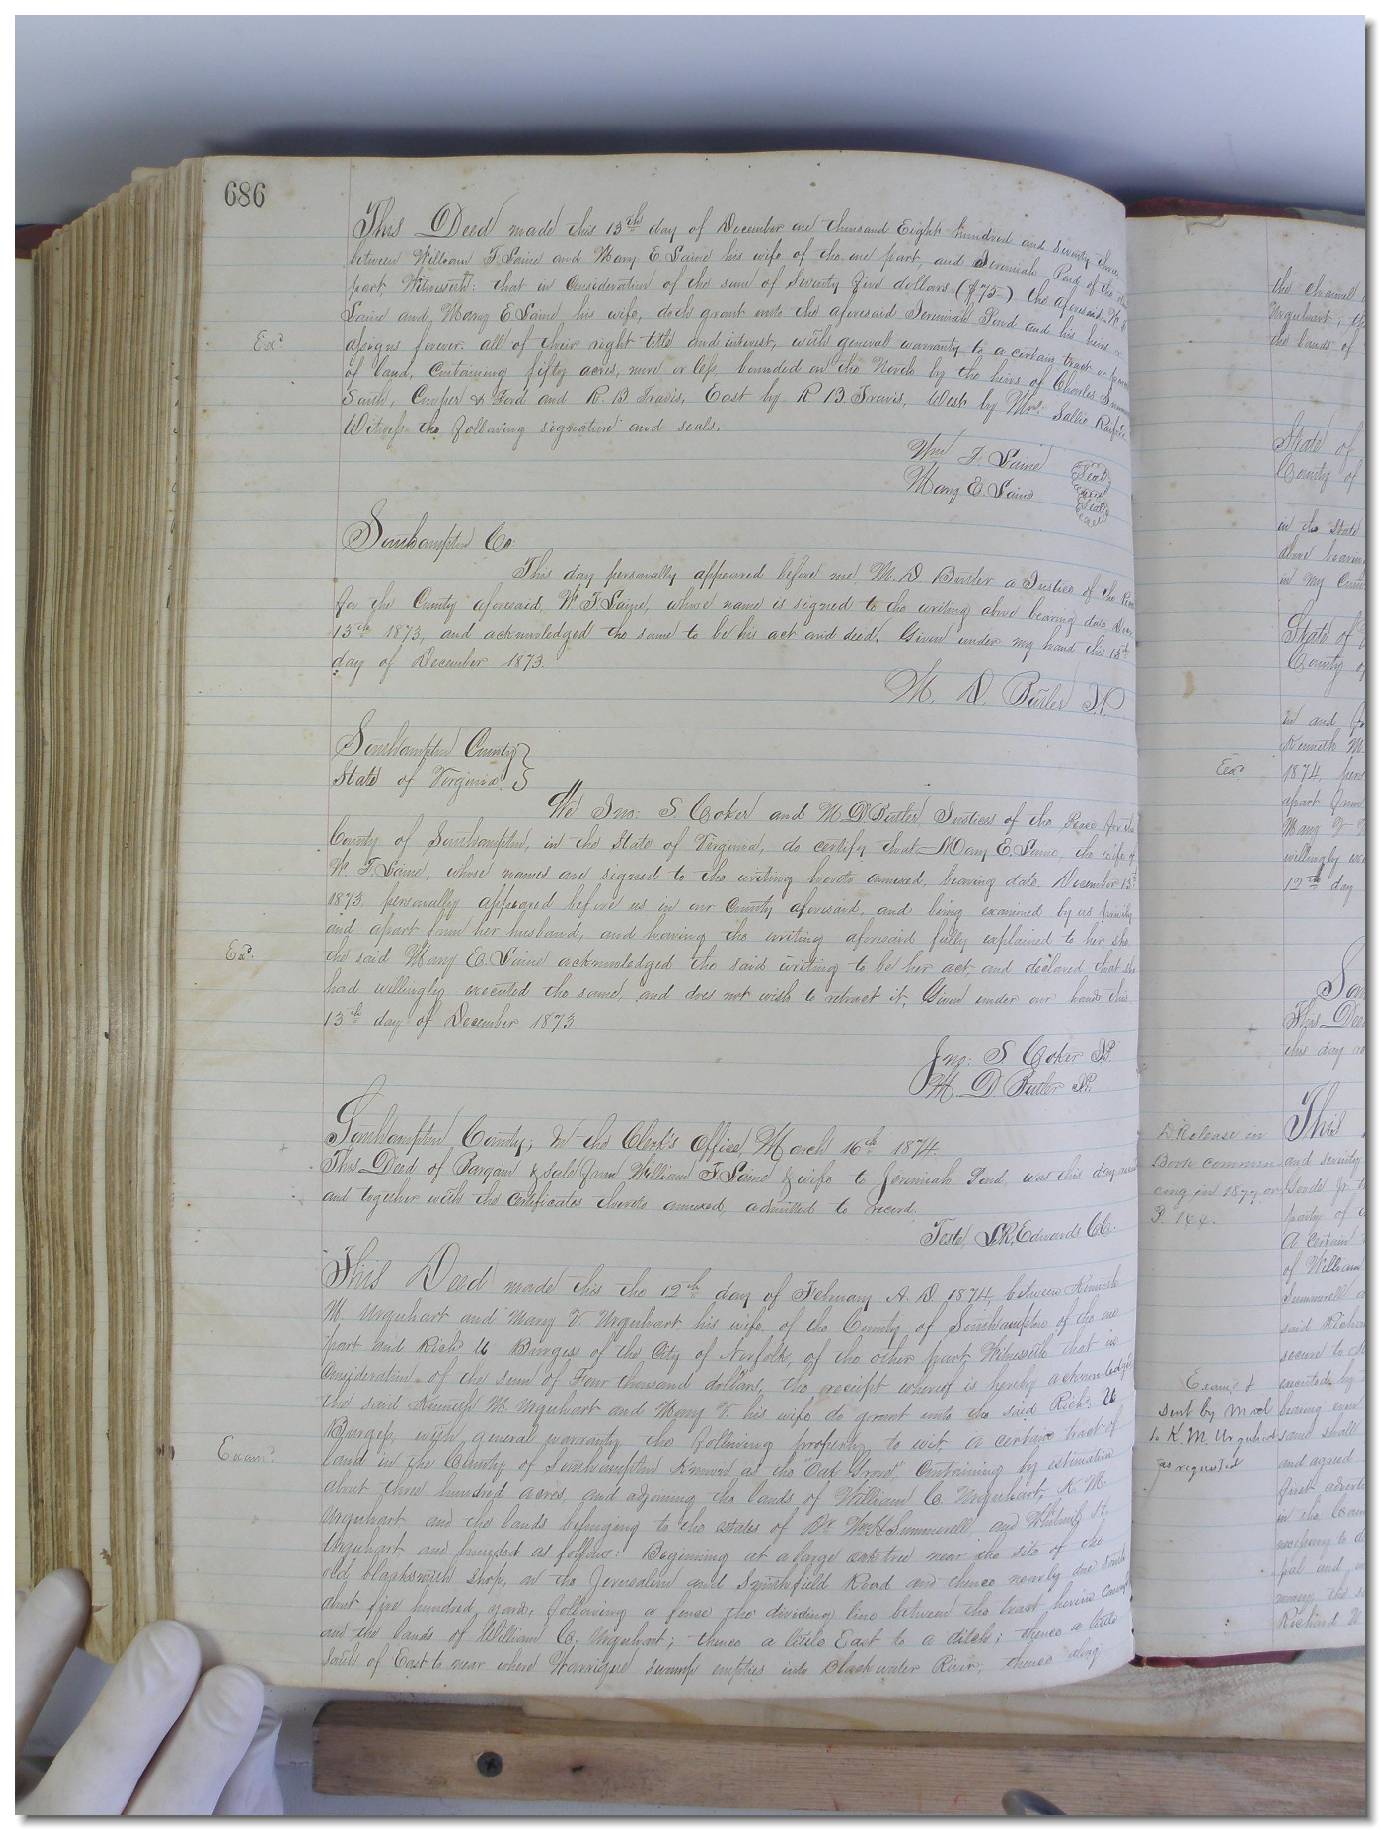 686
This Deed made this 13th day of December one thousand Eight hundred and seventy three
between William T. Laine and Mary E Laine his wife of the one part, and Jeremiah Pond of the
part, Witnesseth: that in Consideration of the sum of Seventy five dollars ($75-) the aforesaid W. T.
Laine and Mary E Laine his wife, doth grant unto the aforesaid Jeremiah Pond and his heirs
Exd
assigns forever all of their right title and interest, with general warranty to a certain tract or
of land, Containing fifty acres, more or less, bounded on the North by the heirs of Charles
South, Cooper & Ford and R. B Travis, East by R B. Travis, West by Mrs Sallie
Witness the following signature and seals.
Wm T. Laine Seal
Mary E. Laine Seal
Southampton Co:
This day personally appeared before me, M. D. Butler a Justice of the Peace
for the County aforesaid, W T. Laine, whose name is signed to the writing above bearing date Dec.
13th 1873, and acknowledged the same to be his act and deed. Given under my hand this 13th
day of December 1873.
M. D. Butler J.P.
Southampton County
State of Virginia
We Jno: S. Coker and M. D Butler Justices of the Peace for the
County of Southampton, in the State of Virginia, do certify that Mary E. Laine, the wife of
W T. Laine, whose names are signed to the writing hereto annexed, bearing date December 13th
1873, personally appeared before us in our County aforesaid, and being examined by us privily
and apart from her husband, and having the writing aforesaid fully explained to her she
Exd.
the said Mary E. Laine acknowledged the said writing to be her act, and declared that she
had willingly executed the same, and does not wish to retract it. Given under our hands this
13th day of December 1873
Jno: S Coker JP.
M. D Butler JP.
Southampton County; In the Clerk's Office, March 16th 1874.
This Deed of Bargain & sale from William T. Laine & wife to Jeremiah Pond, was this day
and together with the Certificates thereto annexed, admitted to record.
Teste, L.R. Edwards CC.
This Deed made this the 12th day of February A. D. 1874, between Kenneth
M. Urquhart and Mary V. Urquhart his wife of the County of Southampton of the one
part and Richd U Burges of the City of Norfolk, of the other part, Witnesseth that in
Consideration of the sum of Four thousand dollars, the receipt whereof is hereby acknowledged
the said Kenneth M. Urquhart and Mary V. his wife do grant unto the said Richd U
Burgess, with general warranty the following property to wit, a certain tract of
Examd.
land in the County of Southampton known as the "Oak Grove," Containing by estimation
about three hundred acres, and adjoining the lands of William C. Urquhart, K. M.
Urquhart and the lands belonging to the estates of Dr Wm H Summerell and Whitmel H.
Urquhart and bounded as follows: Beginning at a large oak tree near the site of the
old blacksmith shop, on the Jerusalem and Smithfield Road and thence nearly due South
about five hundred yards, following a fence the dividing line between the tract herein
and the lands of William C. Urquhart; thence a little East to a ditch; thence a little
South of East to near where swamp empties into Blackwater River; thence along
the channel
Urquhart,
the lands of
State of
County of
in the State
above bearing
in my
State of
County of
in and for
Kenneth M.
Exd
1874, pers
apart from
Mary V
willingly
12th day
This Deed
this day
This
A Release in
Book commen
cing in 1877 on
P. 144.
and seventy
party of
A Certain
of William
Summerell
said Richard
secure to
Examd &
sent by mail
to K. M. Urquhart
as requested
executed by
bearing even
same shall
and agreed
first
in the
Richard U